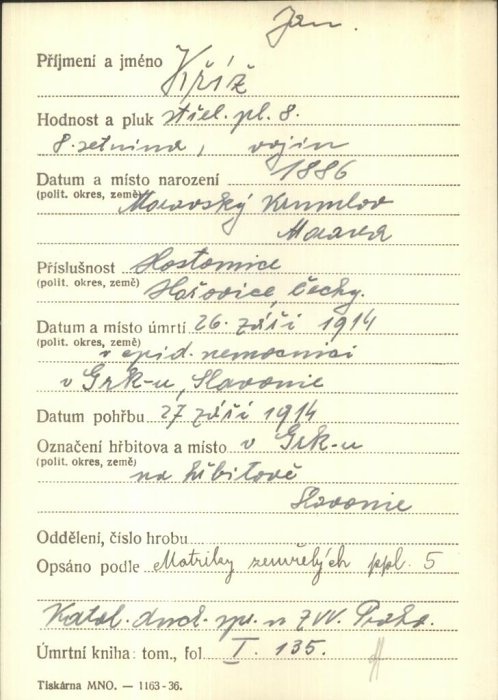 Jan.
Příjmení a jméno Kříž
Hodnost a pluk střel. pl. 8.
8. setnina, vojín
Datum a místo narození 1886
(polit. okres, země) Moravský Krumlov
Morava
Příslušnost Hostomice
(polit. okres, země) Hořovice, Čechy.
Datum a místo úmrtí 26. září 1914
(polit. okres, země) v epid. nemocnici
v Grk-u, Slavonie
Datum pohřbu 27 září 1914
Označení hřbitova a místo v Grk-u
(polit. okres, země) na hřbitově
Slavonie
Oddělení, číslo hrobu
Opsáno podle Matriky zemřelých ppl. 5
Katol. duch. spr. u ZVV. Praha.
Úmrtní kniha: tom., fol. I. 135.
Tiskárna MNO. — 1163-36.